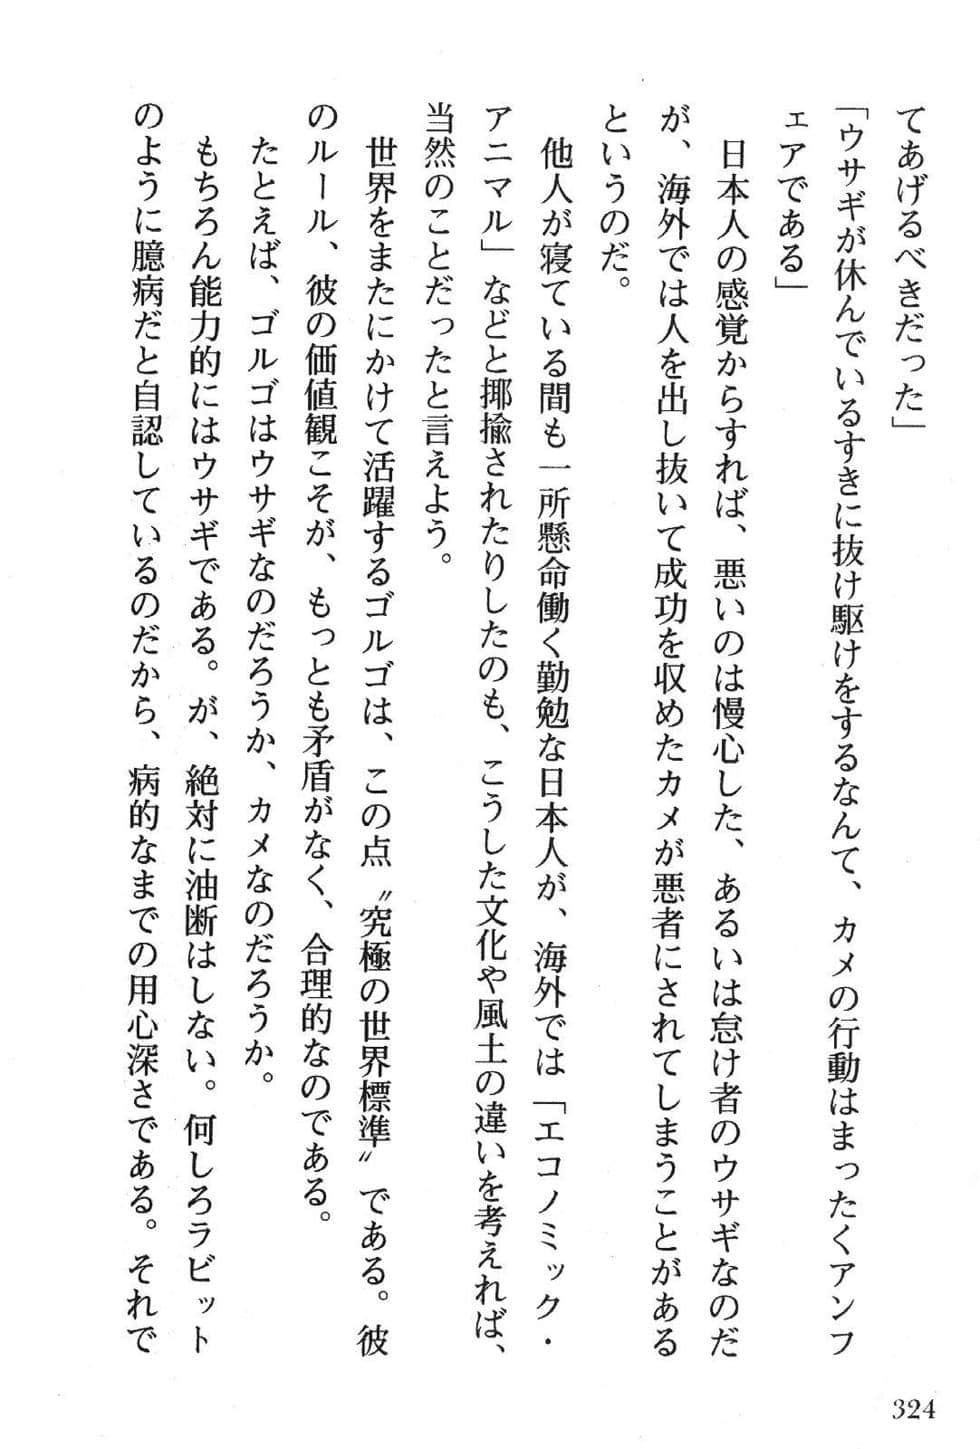 てあげるべきだった」
「ウサギが休んでいるすきに抜け駆けをするなんて、カメの行動はまったくアンフ
ェアである」
日本人の感覚からすれば、悪いのは慢心した、あるいは怠け者のウサギなのだ
が、海外では人を出し抜いて成功を収めたカメが悪者にされてしまうことがある
というのだ。
他人が寝ている間も一所懸命働く勤勉な日本人が、海外では「エコノミック・
アニマル」などと揶揄されたりしたのも、こうした文化や風土の違いを考えれば、
当然のことだったと言えよう。
世界をまたにかけて活躍するゴルゴは、この点〝究極の世界標準〟である。彼
のルール、彼の価値観こそが、もっとも矛盾がなく、合理的なのである。
たとえば、ゴルゴはウサギなのだろうか、カメなのだろうか。
もちろん能力的にはウサギである。が、絶対に油断はしない。何しろラビット
のように臆病だと自認しているのだから、病的なまでの用心深さである。それで
324